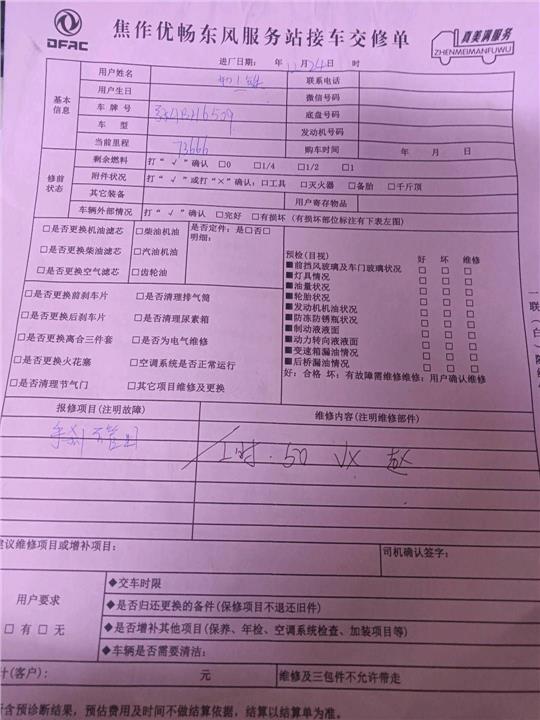 DFAC
焦作优畅东风服务站接车交修单
真美满服务
ZHENMEIMANFUWU
进厂日期： 年 月24日 时
基本信息
用户姓名
联系电话
用户生日
微信号码
车 牌 号
底盘号码
车 型
发动机号码
当前里程 73666
购车时间 年 月 日
修前状态
剩余燃料 打“√”确认 □0 □1/4 □1/2 □1
附件状况 打“√”或打“×”确认：□工具 □灭火器 □备胎 □千斤顶
其它装备
用户寄存物品
车辆外部情况 打“√”确认 □完好 □有损坏（有损坏部位标注有下表左图）
□是否更换机油滤芯 □柴油机油
是否定件：是□否□
明细：
□是否更换柴油滤芯 □汽油机油
□是否更换空气滤芯 □齿轮油
□是否更换前刹车片 □是否清理排气筒
□是否更换后刹车片 □是否清理尿素箱
□是否更换离合三件套 □是否为电气维修
□是否更换火花塞 □空调系统是否正常运行
□是否清理节气门 □其它项目维修及更换
预检(目视) 好 坏 维修
■前挡风玻璃及车门玻璃状况 □ □ □
■灯具情况 □ □ □
■油量状况 □ □ □
■轮胎状况 □ □ □
■发动机机油状况 □ □ □
■防冻防锈瓶状况 □ □ □
■制动液液面 □ □ □
■动力转向液面 □ □ □
■变速箱漏油情况 □ □ □
■后桥漏油情况 □ □ □
好：合格 坏：有故障需维修维修：用户确认维修
报修项目(注明故障)
维修内容(注明维修部件)
手刹不管用
工时.50
建议维修项目或增补项目：
司机确认签字：
用户要求
□ 有 □ 无
◆交车时限
◆是否归还更换的备件(保修项目不退还旧件)
◆是否增补其他项目(保养、年检、空调系统检查、加装项目等)
◆车辆是否需要清洁：
计(客户)： 元
维修及三包件不允许带走
所含预诊断结果，预估费用及时间不做结算依据，结算以结算单为准。
一
联
(
白
)